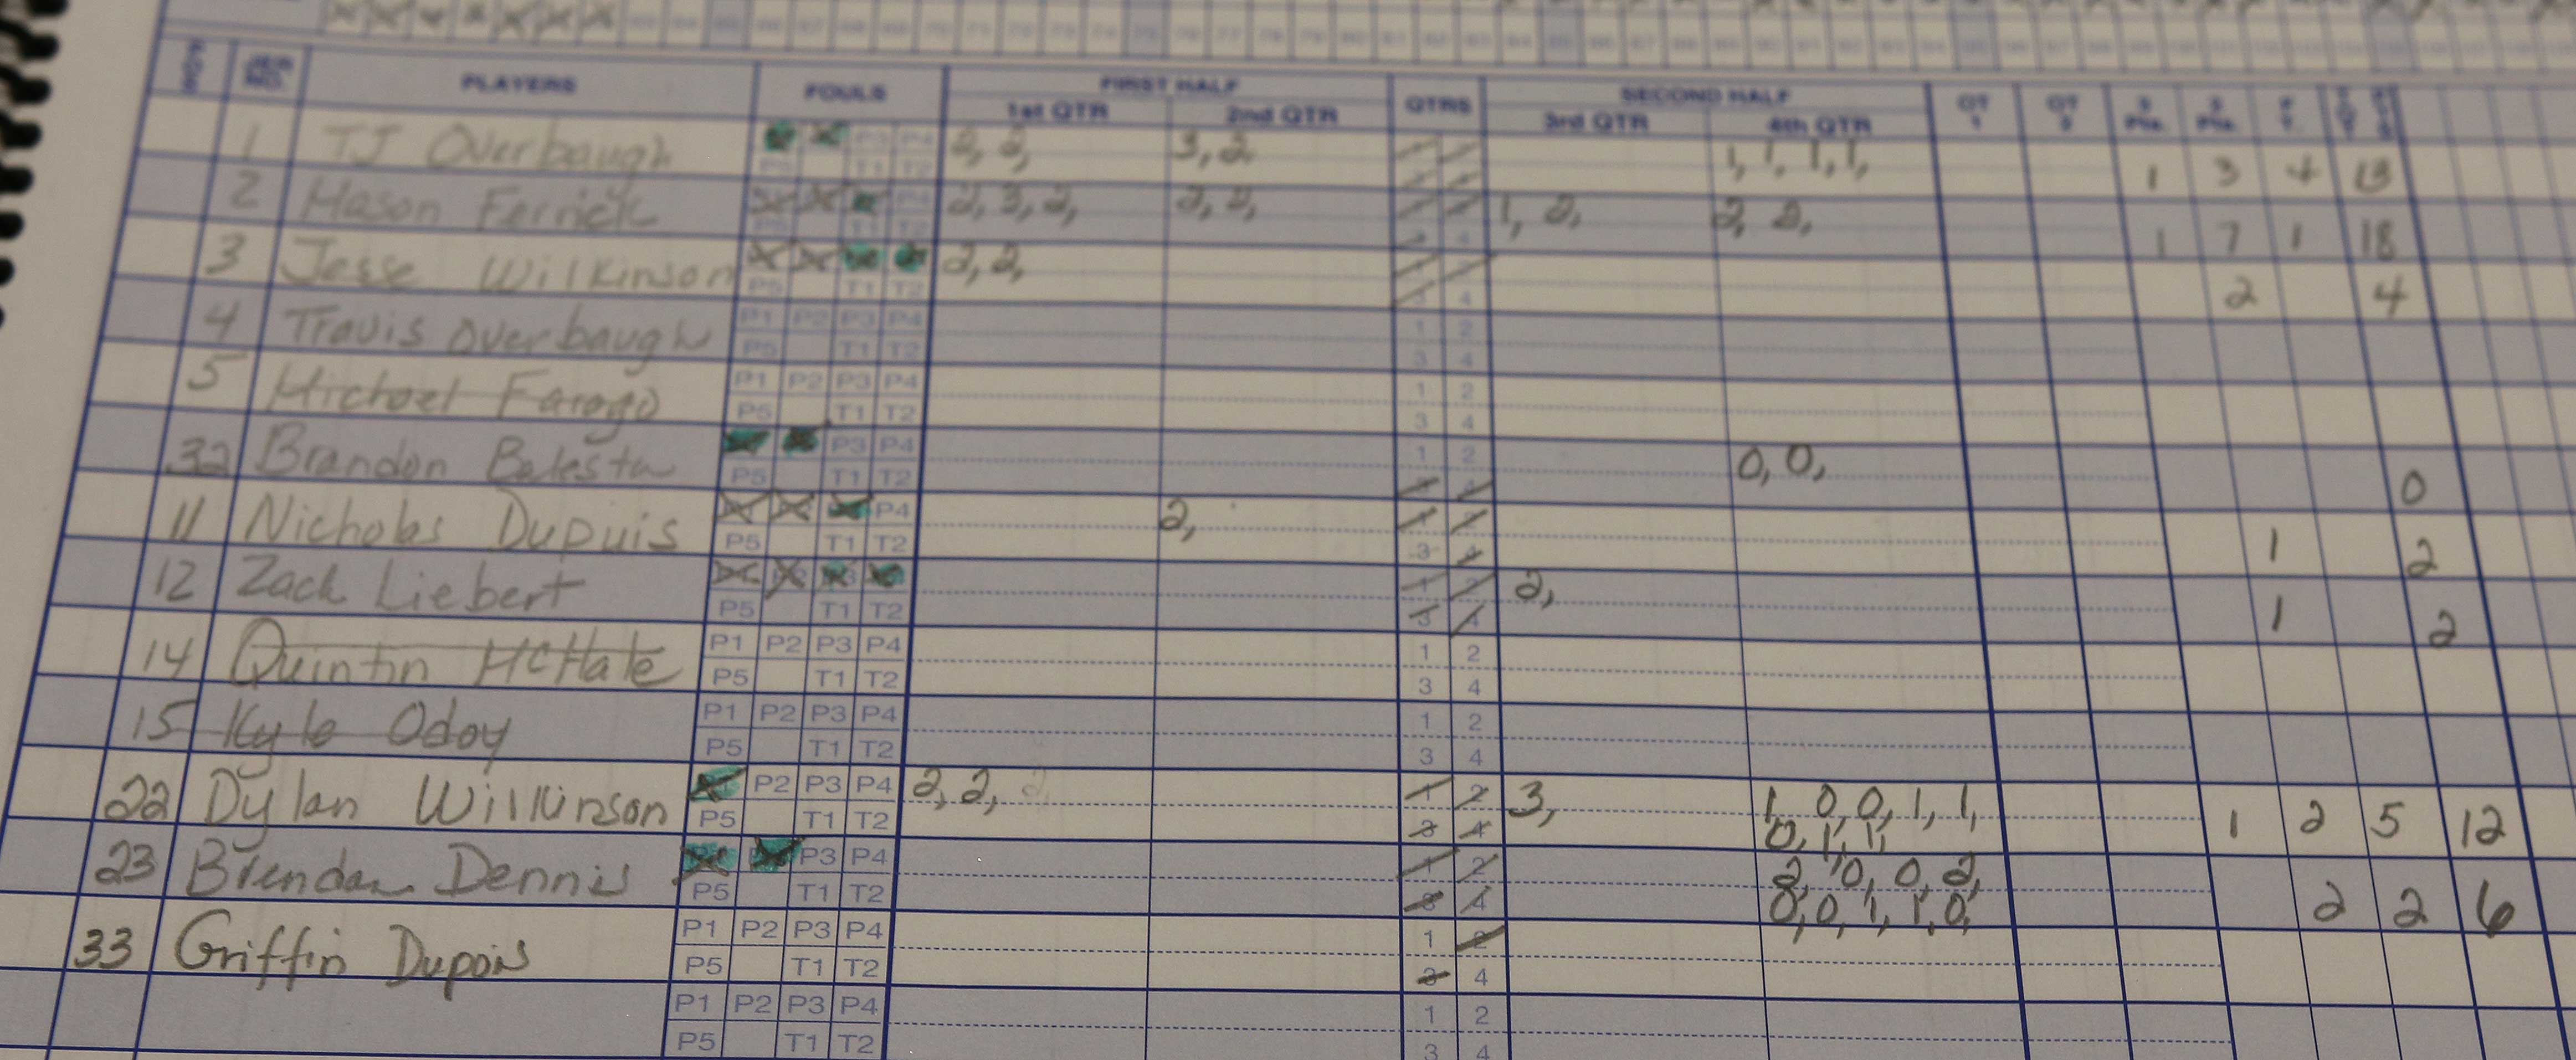 JER NO. PLAYERS FOULS FIRST HALF QTRS SECOND HALF OT 1 OT 2 3 Pts. 2 Pts. F T.
1st QTR 2nd QTR 3rd QTR 4th QTR
1 TJ Overbaugh P3 P4 2, 2, 3, 2, 1, 1, 1, 1, 1 3 4 13
P5 T1 T2
2 Mason Ferrick P4 2, 3, 2, 2, 2, 1, 2, 2, 2, 1 7 1 18
P5 T1 T2 4
3 Jesse Wilkinson 2, 2, 2 4
P5 T1 T2 3 4
4 Travis Overbaugh P1 P2 P3 P4 1 2
P5 T1 T2 3 4
5 Michael Farago P1 P2 P3 P4 1 2
P5 T1 T2 3 4
32 Brandon P3 P4 1 2 0, 0, 0
P5 T1 T2 3 4
11 Nicholas Dupuis P4 2, 1 2 1 2
P5 T1 T2 3 4
12 Zack Liebert 1 2 2, 1 2
P5 T1 T2 3 4
14 Quintin McHale P1 P2 P3 P4 1 2
P5 T1 T2 3 4
15 Kyle Odoy P1 P2 P3 P4 1 2
P5 T1 T2 3 4
22 Dylan Wilkinson P2 P3 P4 2, 2, 2, 1 2 3, 1, 0, 0, 1, 1, 1 2 5 12
P5 T1 T2 3 4 0, 1, 1,
23 Brendan Dennis P3 P4 1 2 2, 0, 0, 2, 2 2 6
P5 T1 T2 3 4 0, 0, 1, 1, 0,
33 Griffin Dupois P1 P2 P3 P4 1 2
P5 T1 T2 3 4
P1 P2 P3 P4 1 2
P5 T1 T2 3 4